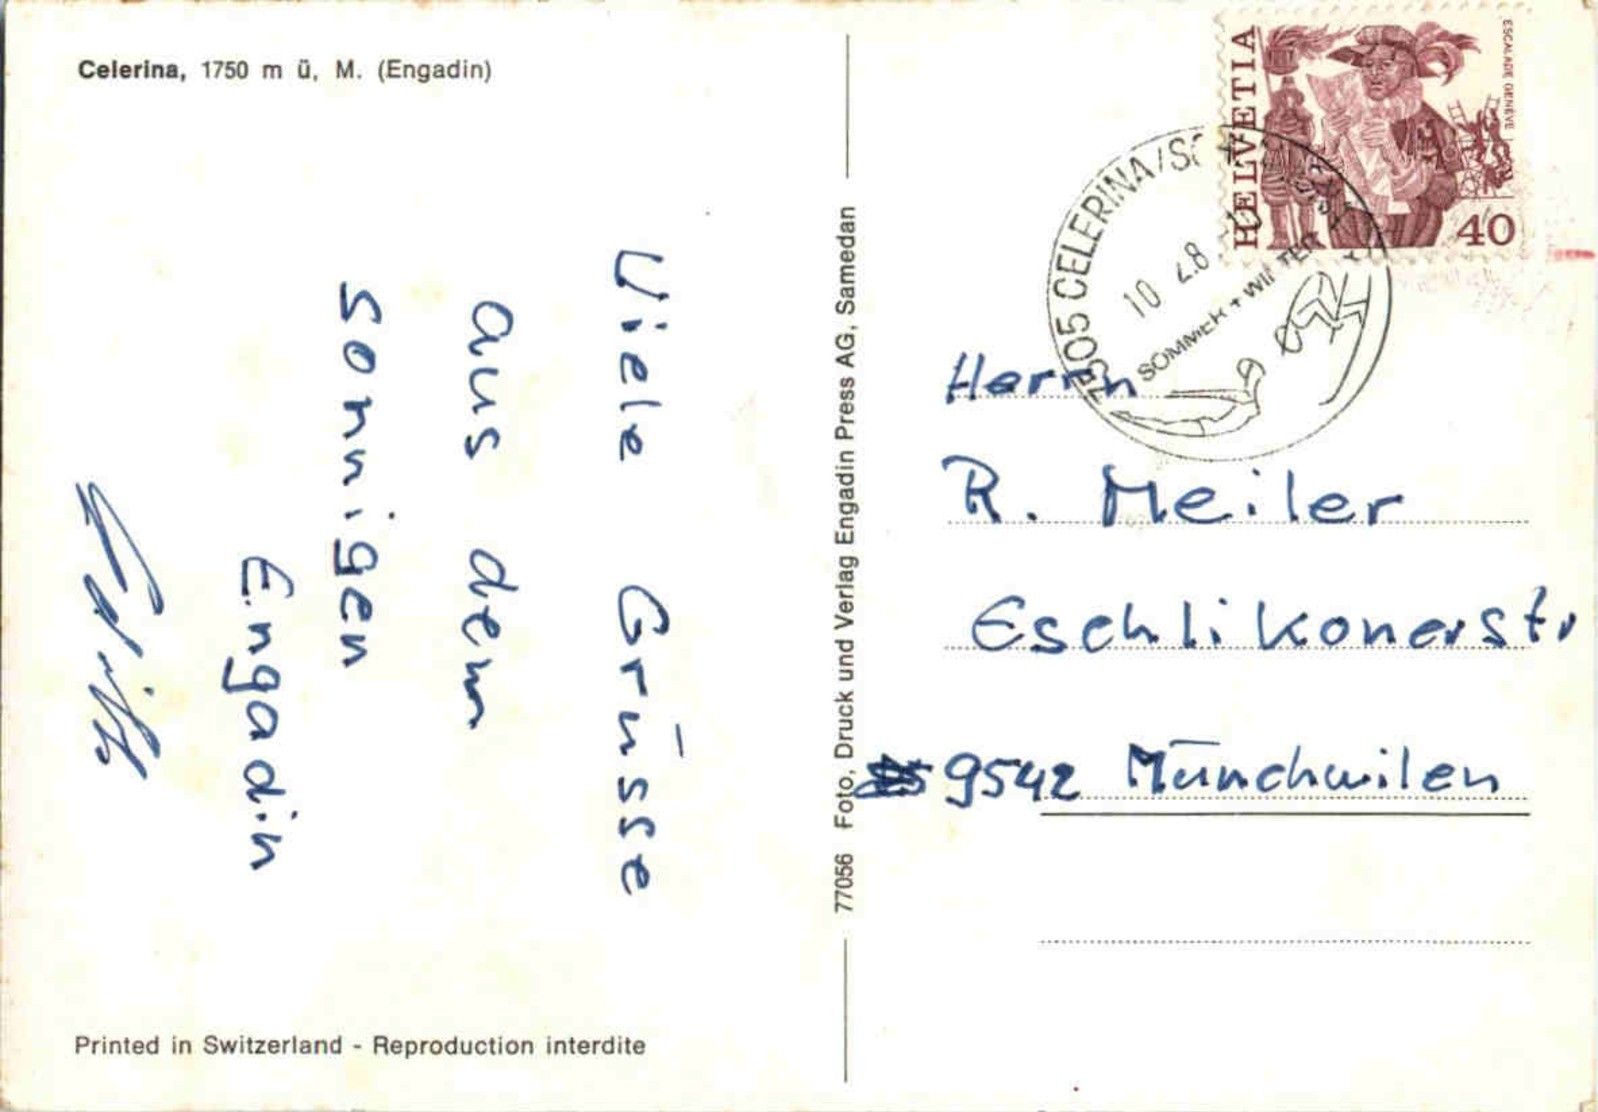 Celerina, 1750 m ü, M. (Engadin)
Viele Grüsse
aus dem
sonnigen
Engadin
Edith
Printed in Switzerland - Reproduction interdite
77056 Foto, Druck und Verlag Engadin Press AG, Samedan
HELVETIA
ESCALADE GENÈVE
40
7505 CELERINA/SC
10 2.8
SOMMER + WINTER
Herrn
R. Meiler
Eschlikonerstr
9542 Münchwilen